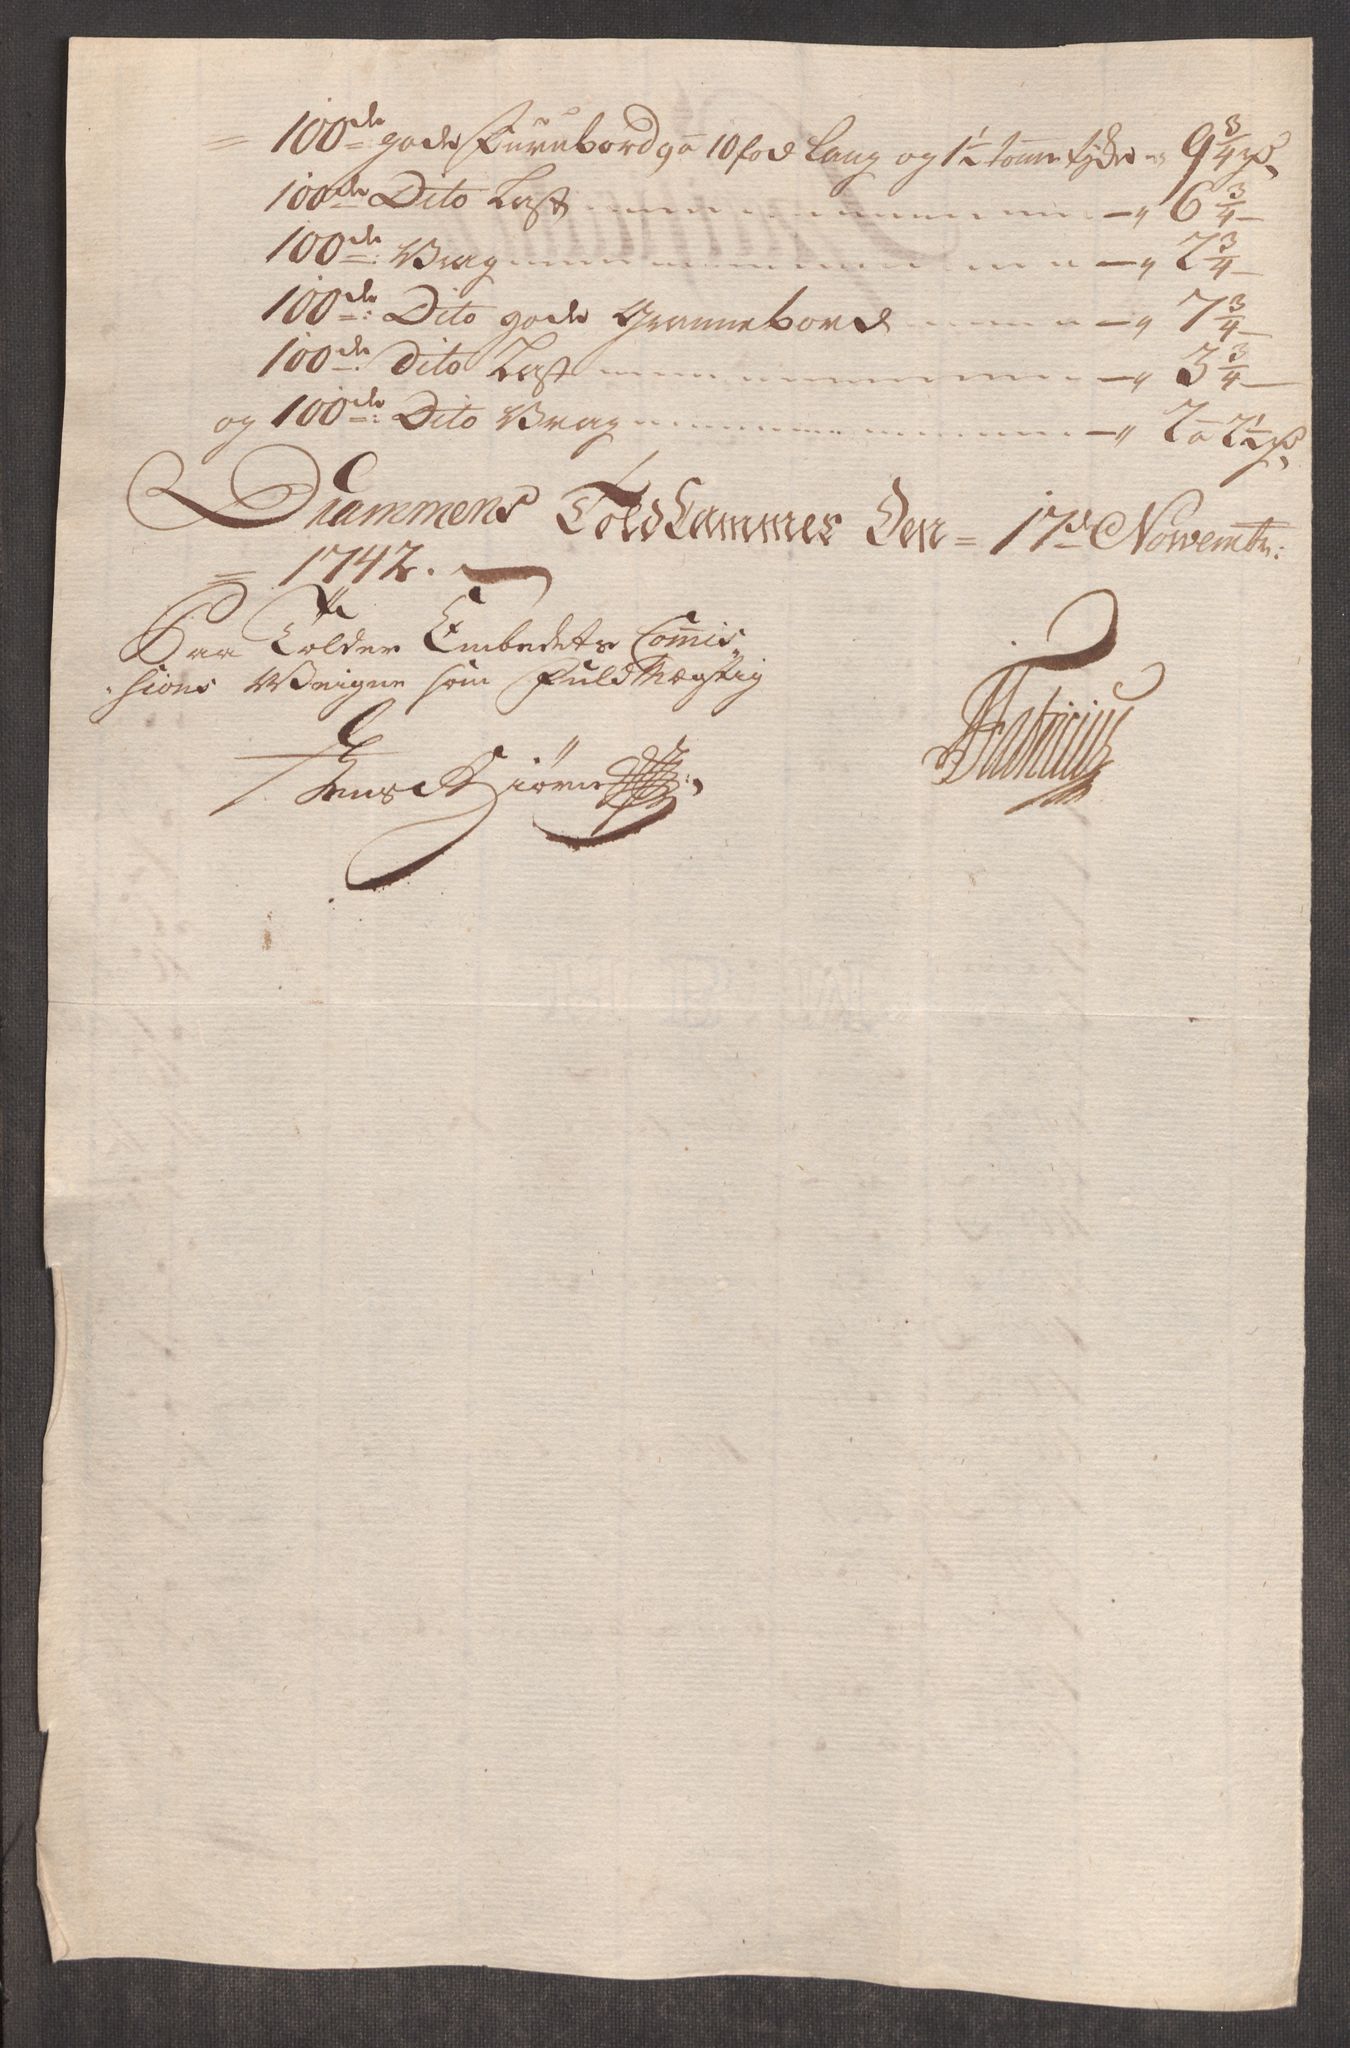 = 100de gode Furrebord 9 a 10 fod lang og 1½ tomme tyke " 9¾ rd
100de Dito Last " 6¾
100de: Vrag " 2¾
100de: Dito gode Grannebord " 7¾
100de. Dito Last " 3¾
og 100de: Dito Vrag " 2 a 2½ rd
Drammens Told Kammer Den = 17de Novembr:
= 1742.
Paa Tolder Embedets Comis-
sions Weigne som Fuldmægtig
Jens Kiörn
Fabricius